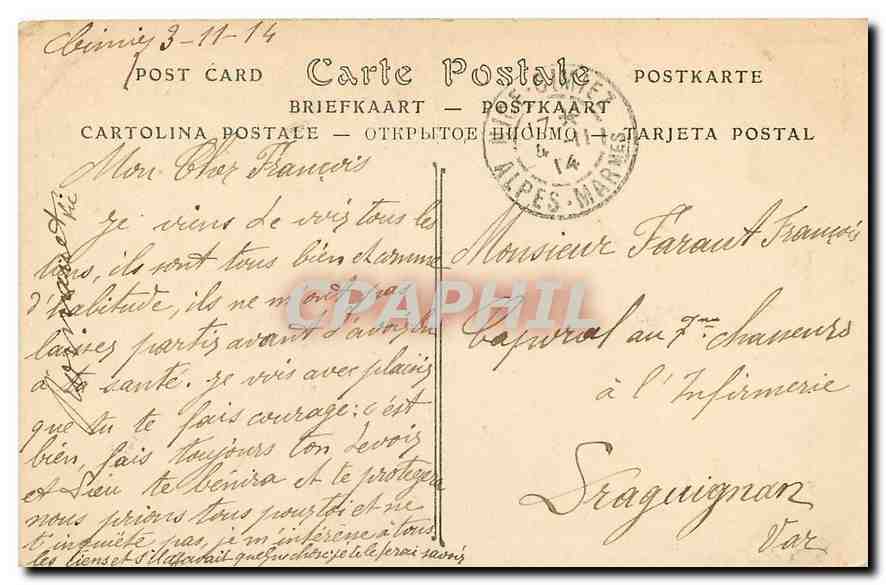 Cimiez 3-11-14
POST CARD Carte Postale POSTKARTE
BRIEFKAART — POSTKAART
CARTOLINA POSTALE — ОТКРЫТОЕ ПИСЬМО — TARJETA POSTAL
NICE-CIMIEZ
7 *
4 -11
14
ALPES-MARMES
Mon Cher François
je viens de voir tous les
tons, ils sont tous bien et comme
d'habitude, ils ne m'ont pas
laissez partir avant d'avoir bu
à ta santé. je vois avec plaisir
que tu te fais courage: c'est
bien, fais toujours ton devoir
et Dieu te bénira et te protegera
nous prions tous pour toi et ne
t'inquiète pas, je m'intérène à tous
les tiens et s'il y avait quelque chose je te le ferai savoir
Monsieur Faraut François
Caporal au 7me chasseurs
à l'Infirmerie
Draguignan
Var
CPAPHIL